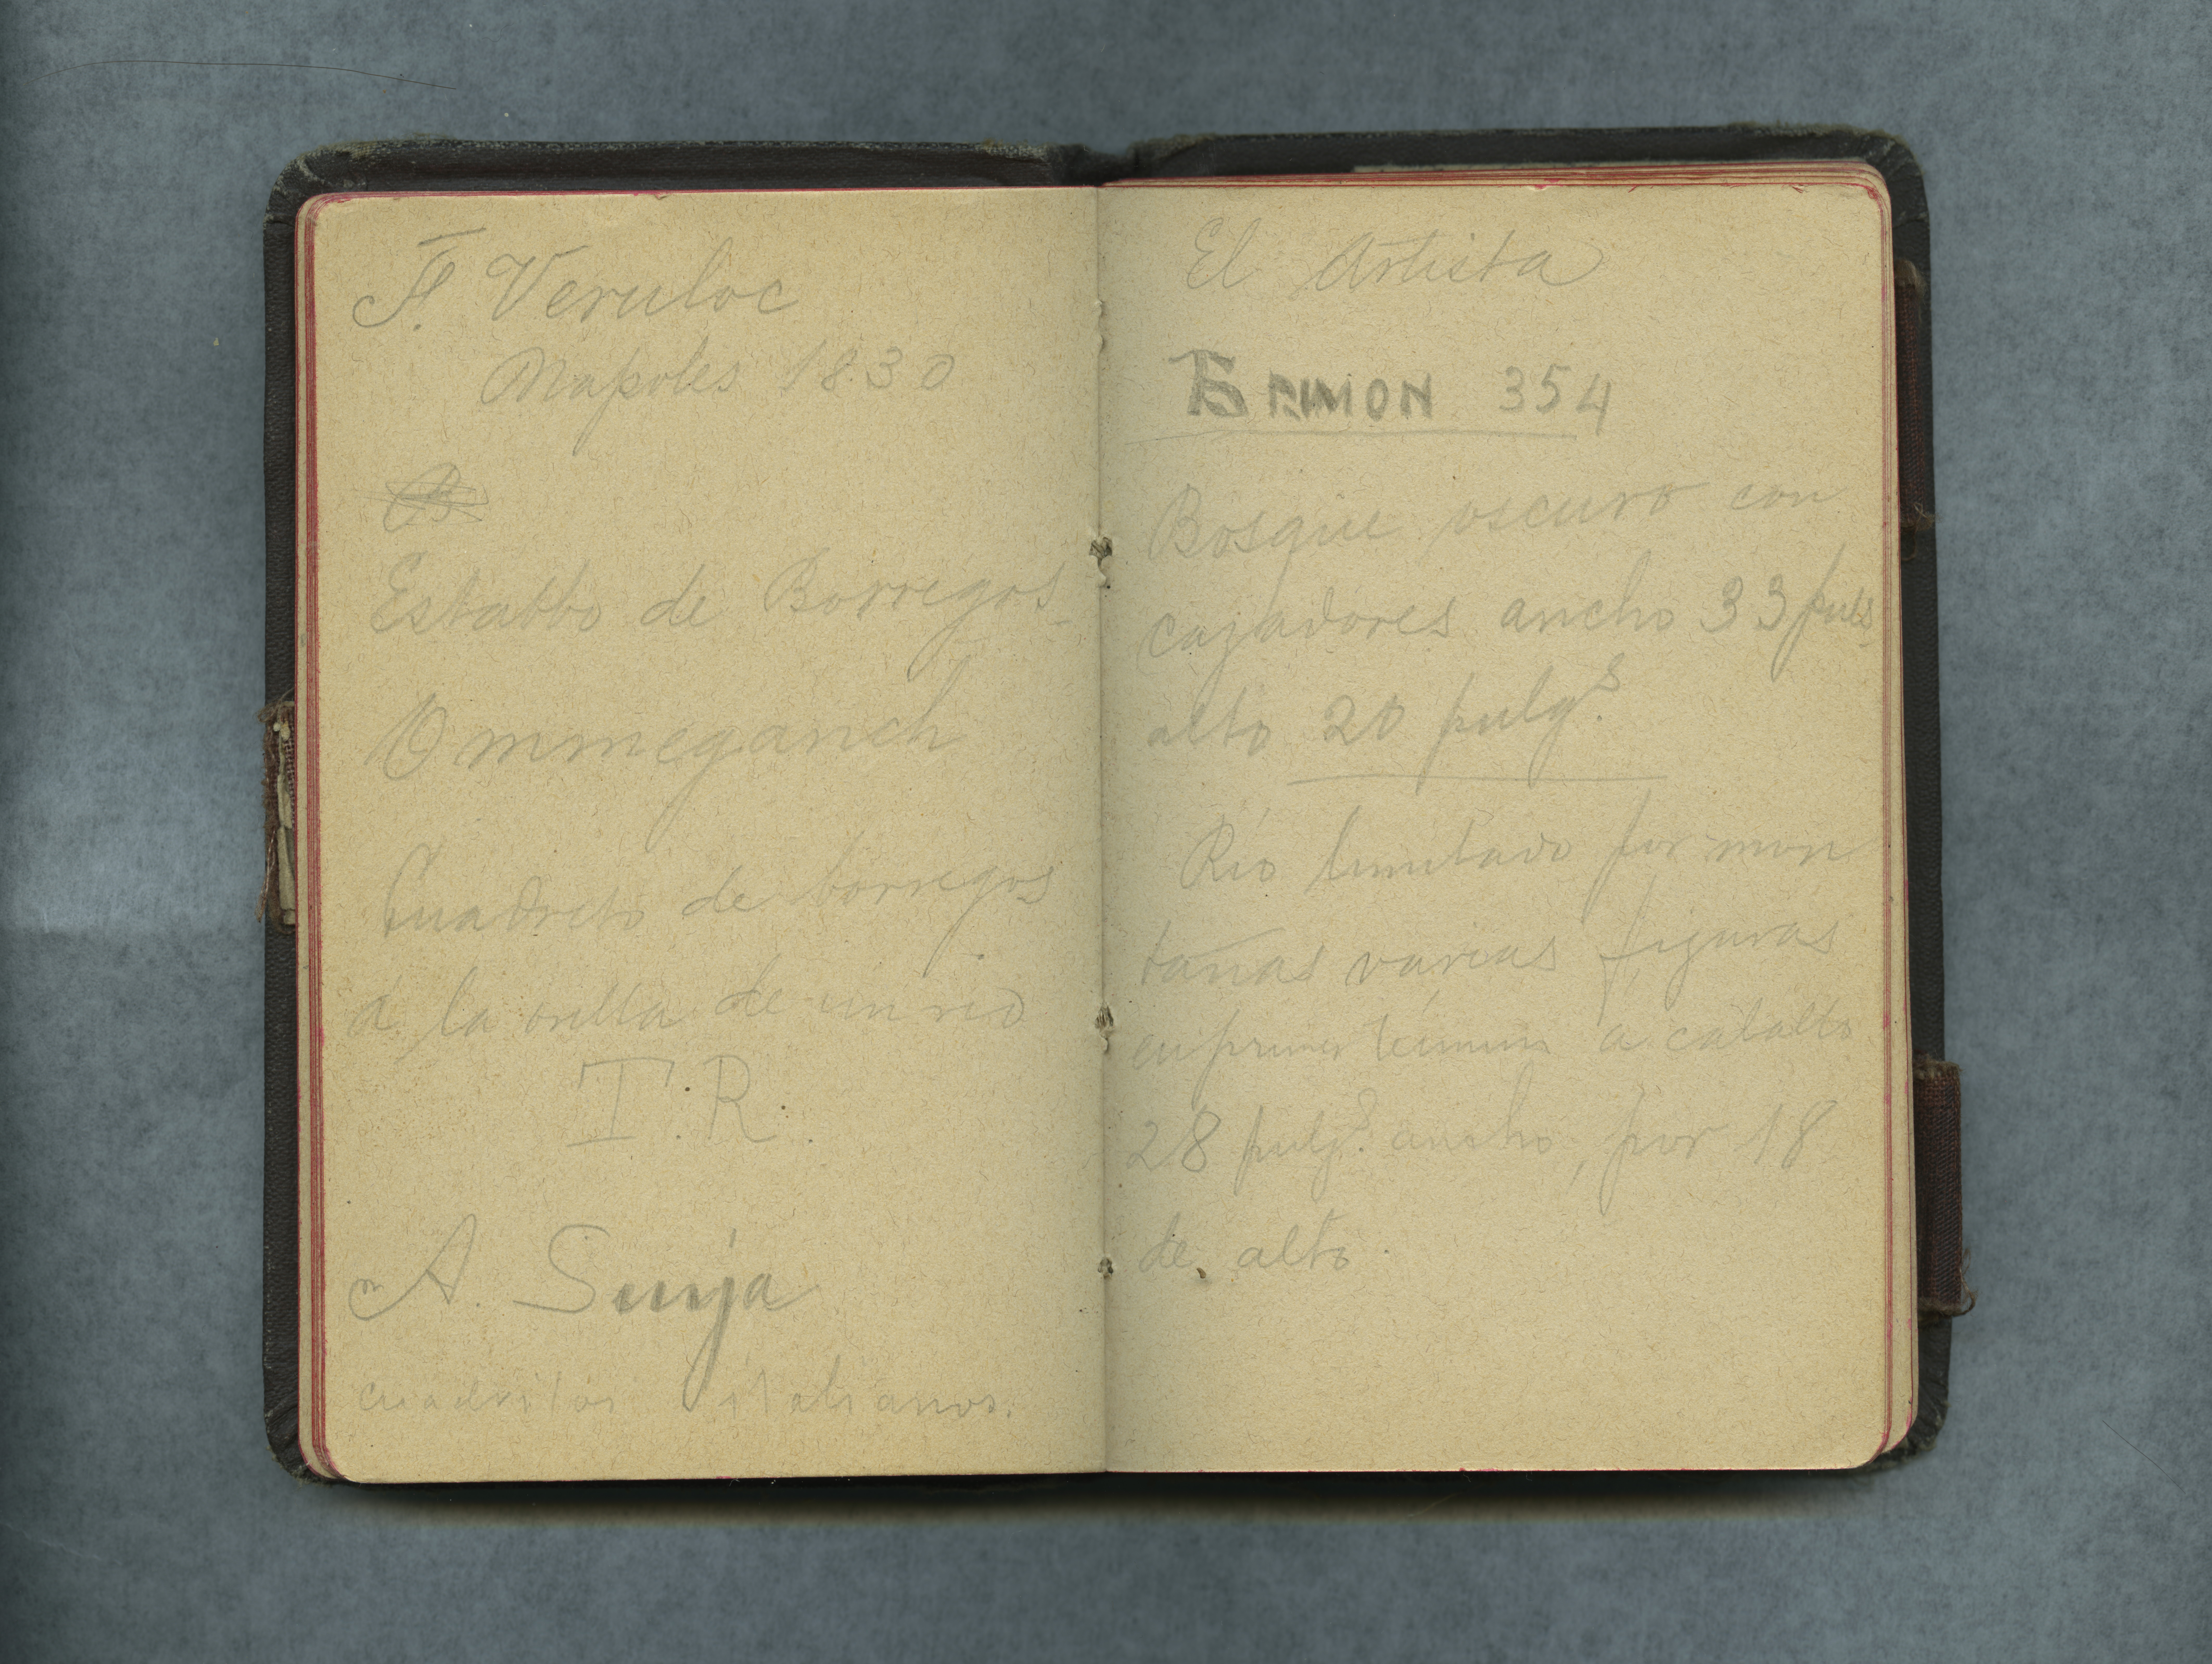 F. Veruloc
Napoles 1830
Establo de Borregos
Ommeganch
Cuadrito de borregos
á la orilla de un rio
T. R.
A. Sunja
cuadritos italianos.
El Artista
RIMON 354
Bosque oscuro con
cazadores ancho 33 puls
alto 20 pulgs.
Rio limitado por mon
tañas varias figuras
en primer término a caballo
28 pulgs. ancho, por 18
de alto